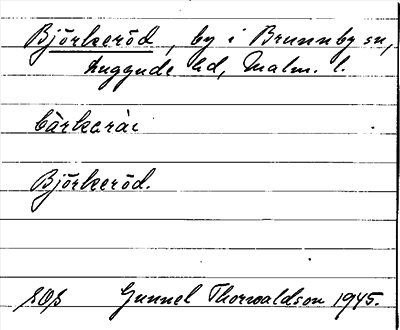 Björkeröd, by i Brunnby sn,
Luggude hd, Malm. l.
Björkeröd.
Gunnel Thorwaldson 1945.